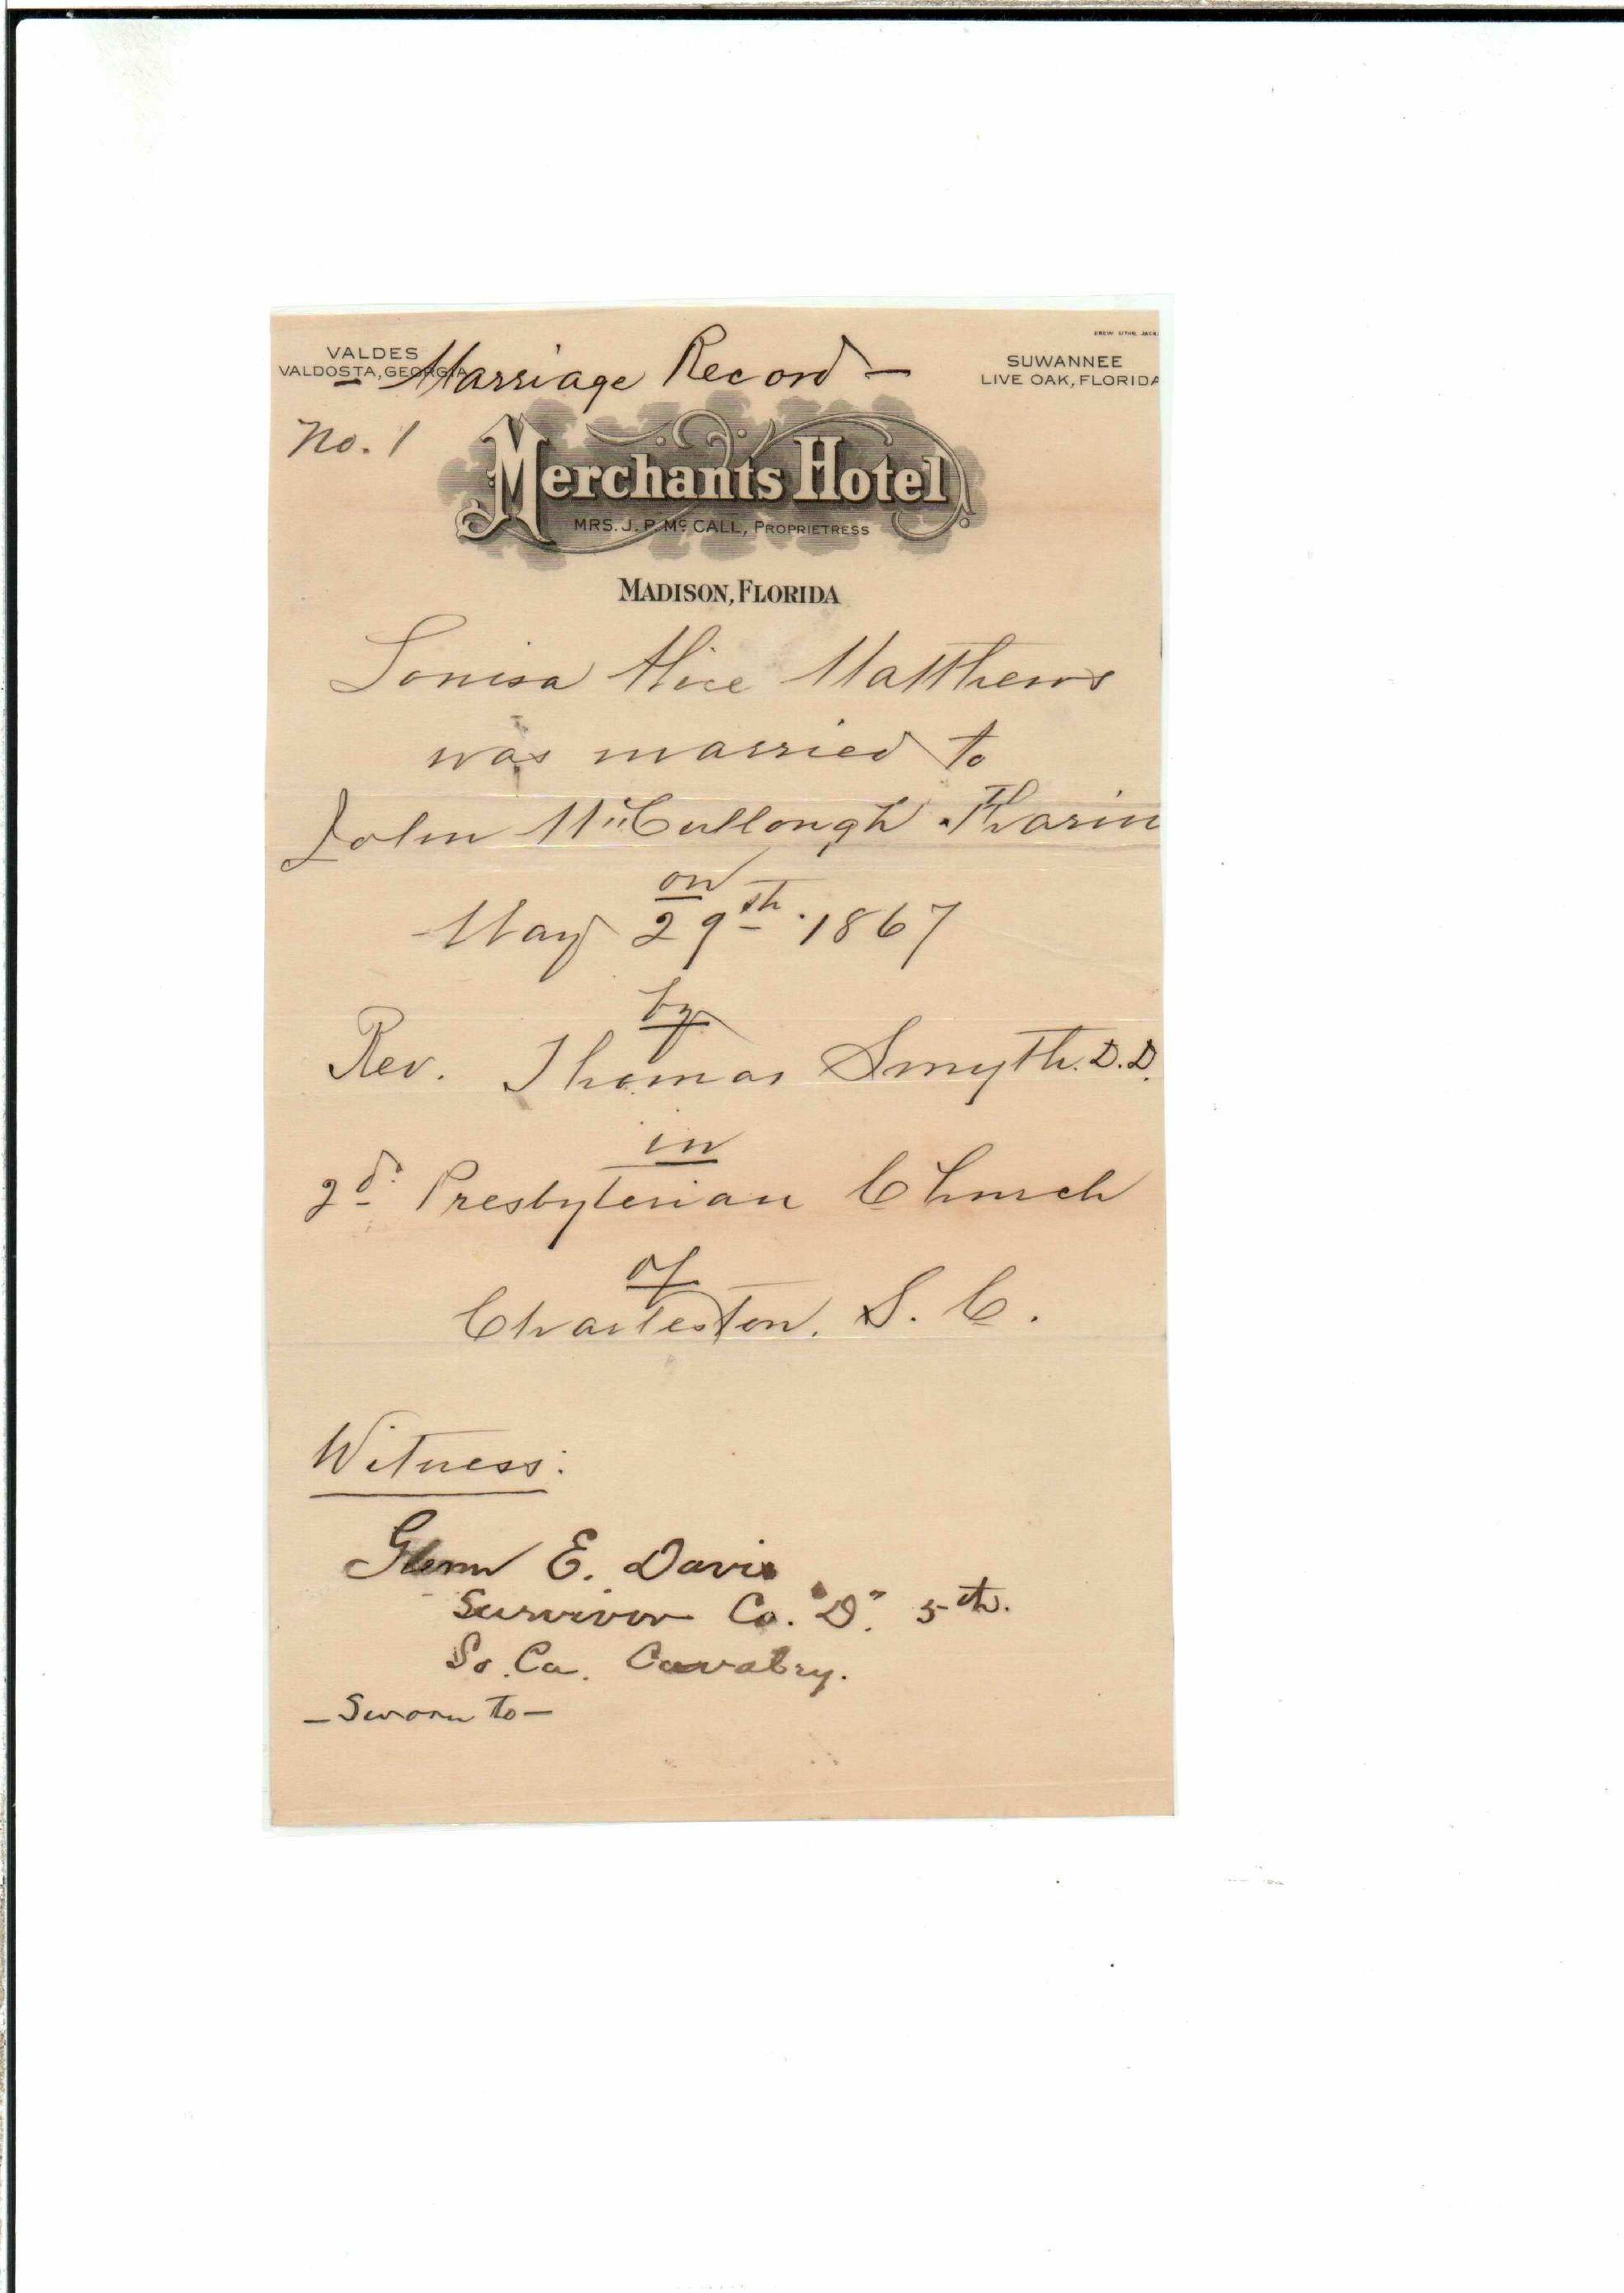 DREW LITHO. JACK.
VALDES
VALDOSTA, GEORGIA
SUWANNEE
LIVE OAK, FLORIDA
- Marriage Record -
No. 1
Merchants Hotel
MRS. J. P. McCALL, PROPRIETRESS
MADISON, FLORIDA
Louisa Alice Matthews
was married to
John McCullough Tharin
on
May 29th. 1867
by
Rev. Thomas Smyth. D.D.
in
2d. Presbyterian Church
of
Charleston. S. C.
Witness:
Glenn E. Davis
Survivor Co. "D". 5th.
So. Ca. Cavalry.
- Sworn to -